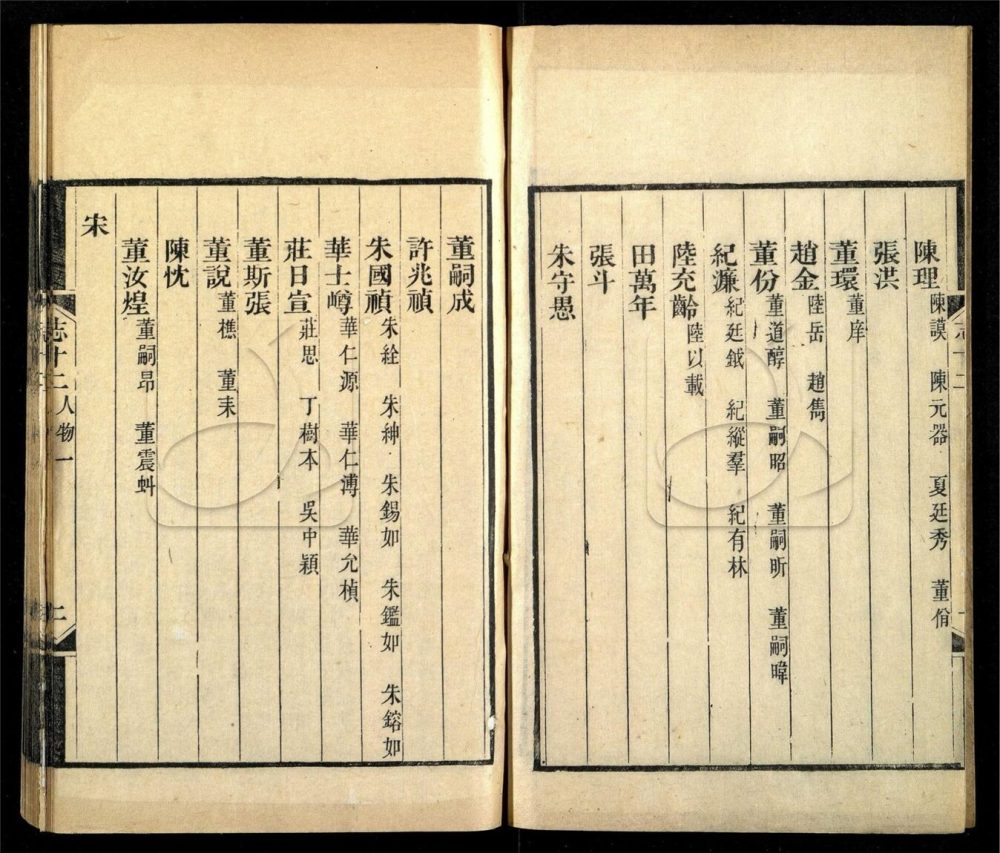 陳理 陳謨 陳元器 夏廷秀 董佾
張洪
董環 董庠
趙金 陸岳 趙雋
董份 董道醇 董嗣昭 董嗣昕 董嗣暐
紀濂 紀廷鉞 紀縱羣 紀有林
陸充齡 陸以載
田萬年
張斗
朱守愚
董嗣成
許兆禎
朱國禎 朱絟 朱紳 朱錫如 朱鑑如 朱鎔如
華士嶟 華仁源 華仁溥 華允楨
莊日宣 莊思 丁樹本 吳中穎
董斯張
董說 董樵 董耒
陳忱
董汝煌 董嗣昂 董震蚪
宋
志十二 人物一 二